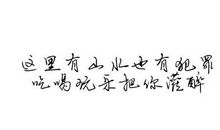 这里有山水也有犯罪
吃喝玩乐把你灌醉